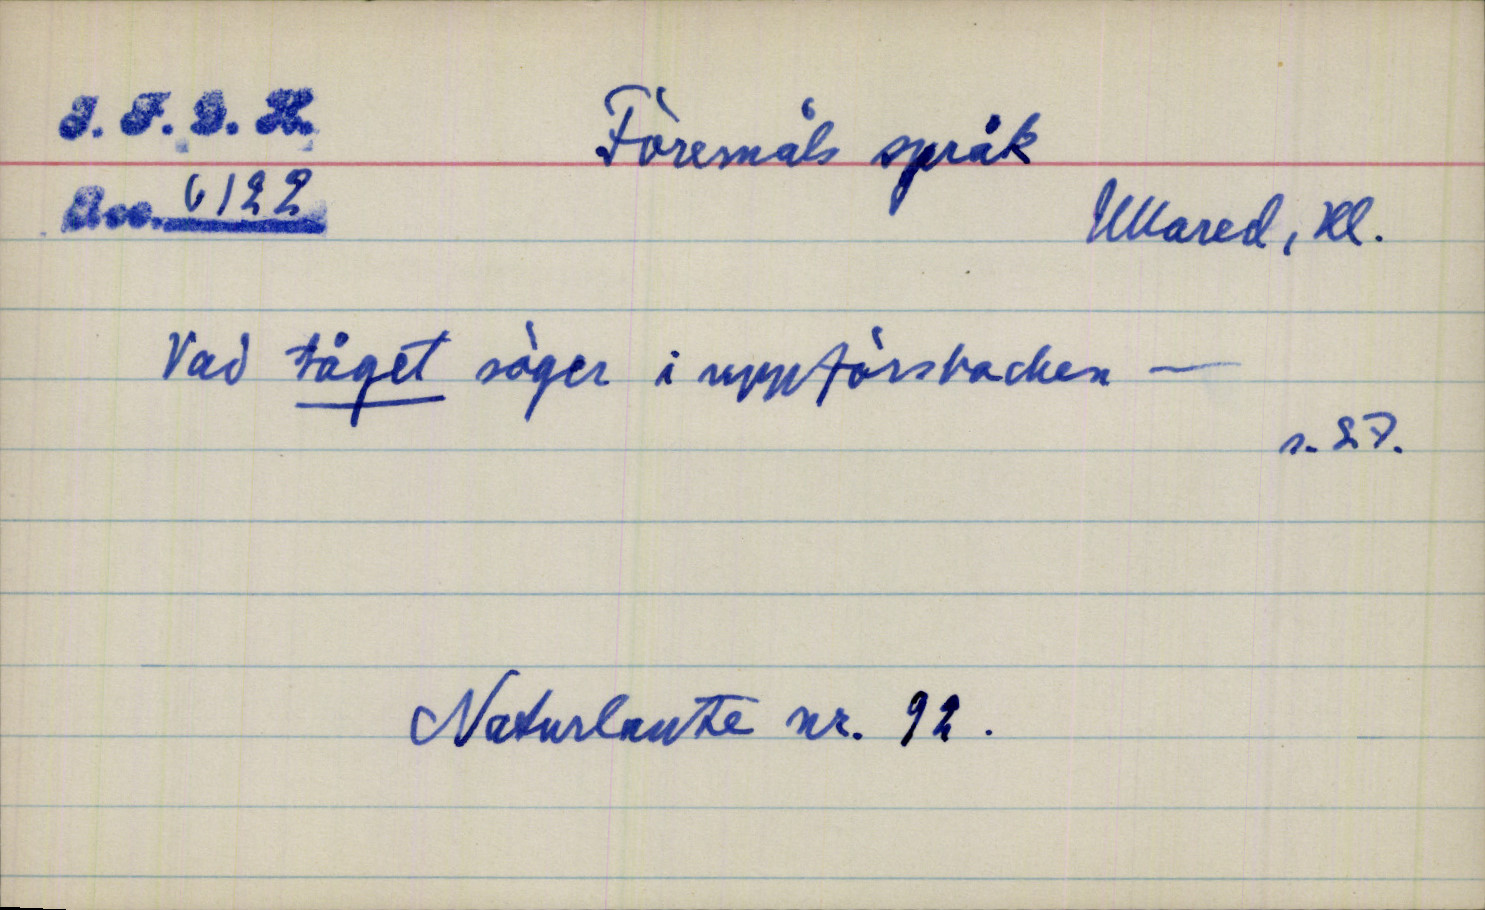 I. F. G. H.
Föremåls språk
Acc. 6122
Ullared, Hl.
Vad tåget säger i uppförsbacken —
s. 27.
Naturlaute nr. 92.